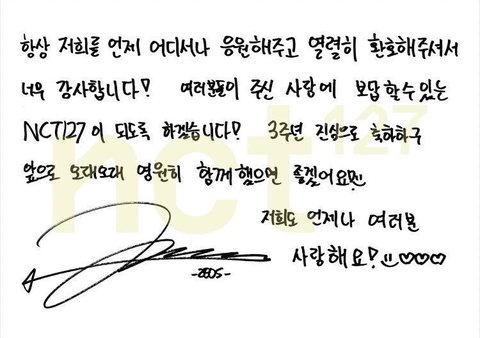 항상 저희를 언제 어디서나 응원해주고 열렬히 환호해주셔서
너무 감사합니다! 여러분들이 주신 사랑에 보답할수있는
NCT127이 되도록 하겠습니다! 3주년 진심으로 축하하구
앞으로 오래오래 영원히 함께 했으면 좋겠어요!!
저희도 언제나 여러분
사랑해요! ♡♡♡
nct 127